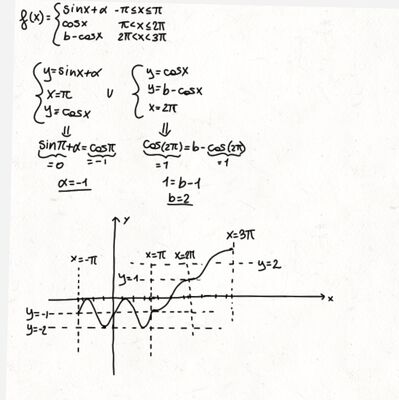 f(x)= { sinx+α -π≤x≤π
cosx π<x≤2π
b-cosx 2π<x<3π
{ y=sinx+α
x=π
y=cosx
∪
{ y=cosx
y=b-cosx
x=2π
⇓
sinπ+α=cosπ
=0 =-1
α=-1
⇓
cos(2π)=b-cos(2π)
=1 1
1=b-1
b=2
y
x=3π
x=-π x=π x=2π
y=2
y=1
x
y=-1
y=-2